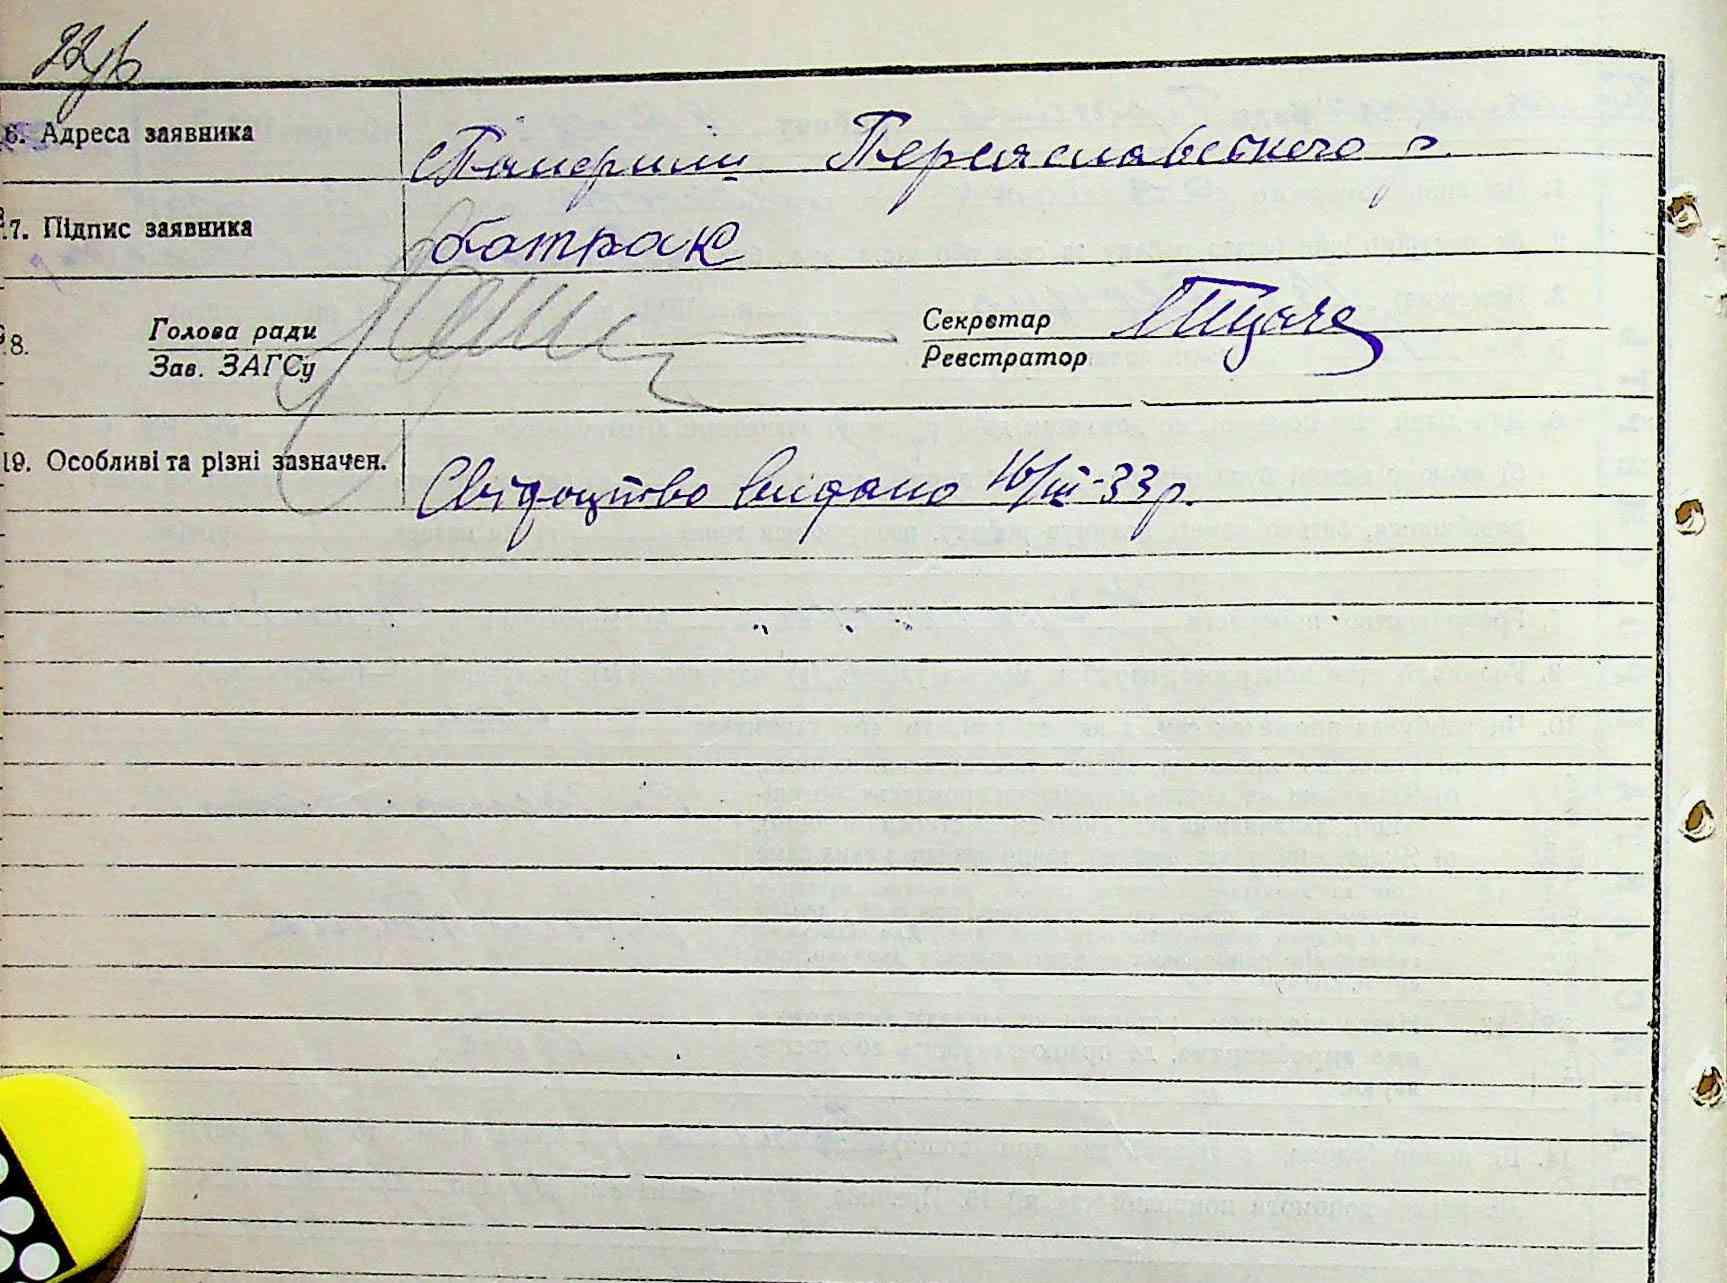 22
6. Адреса заявника Переяславського р.
17. Підпис заявника Батрак
18. Голова ради Секретар
Зав. ЗАГСу Реєстратор
19. Особливі та різні зазначен. Свідоцтво видано 16/III-33р.